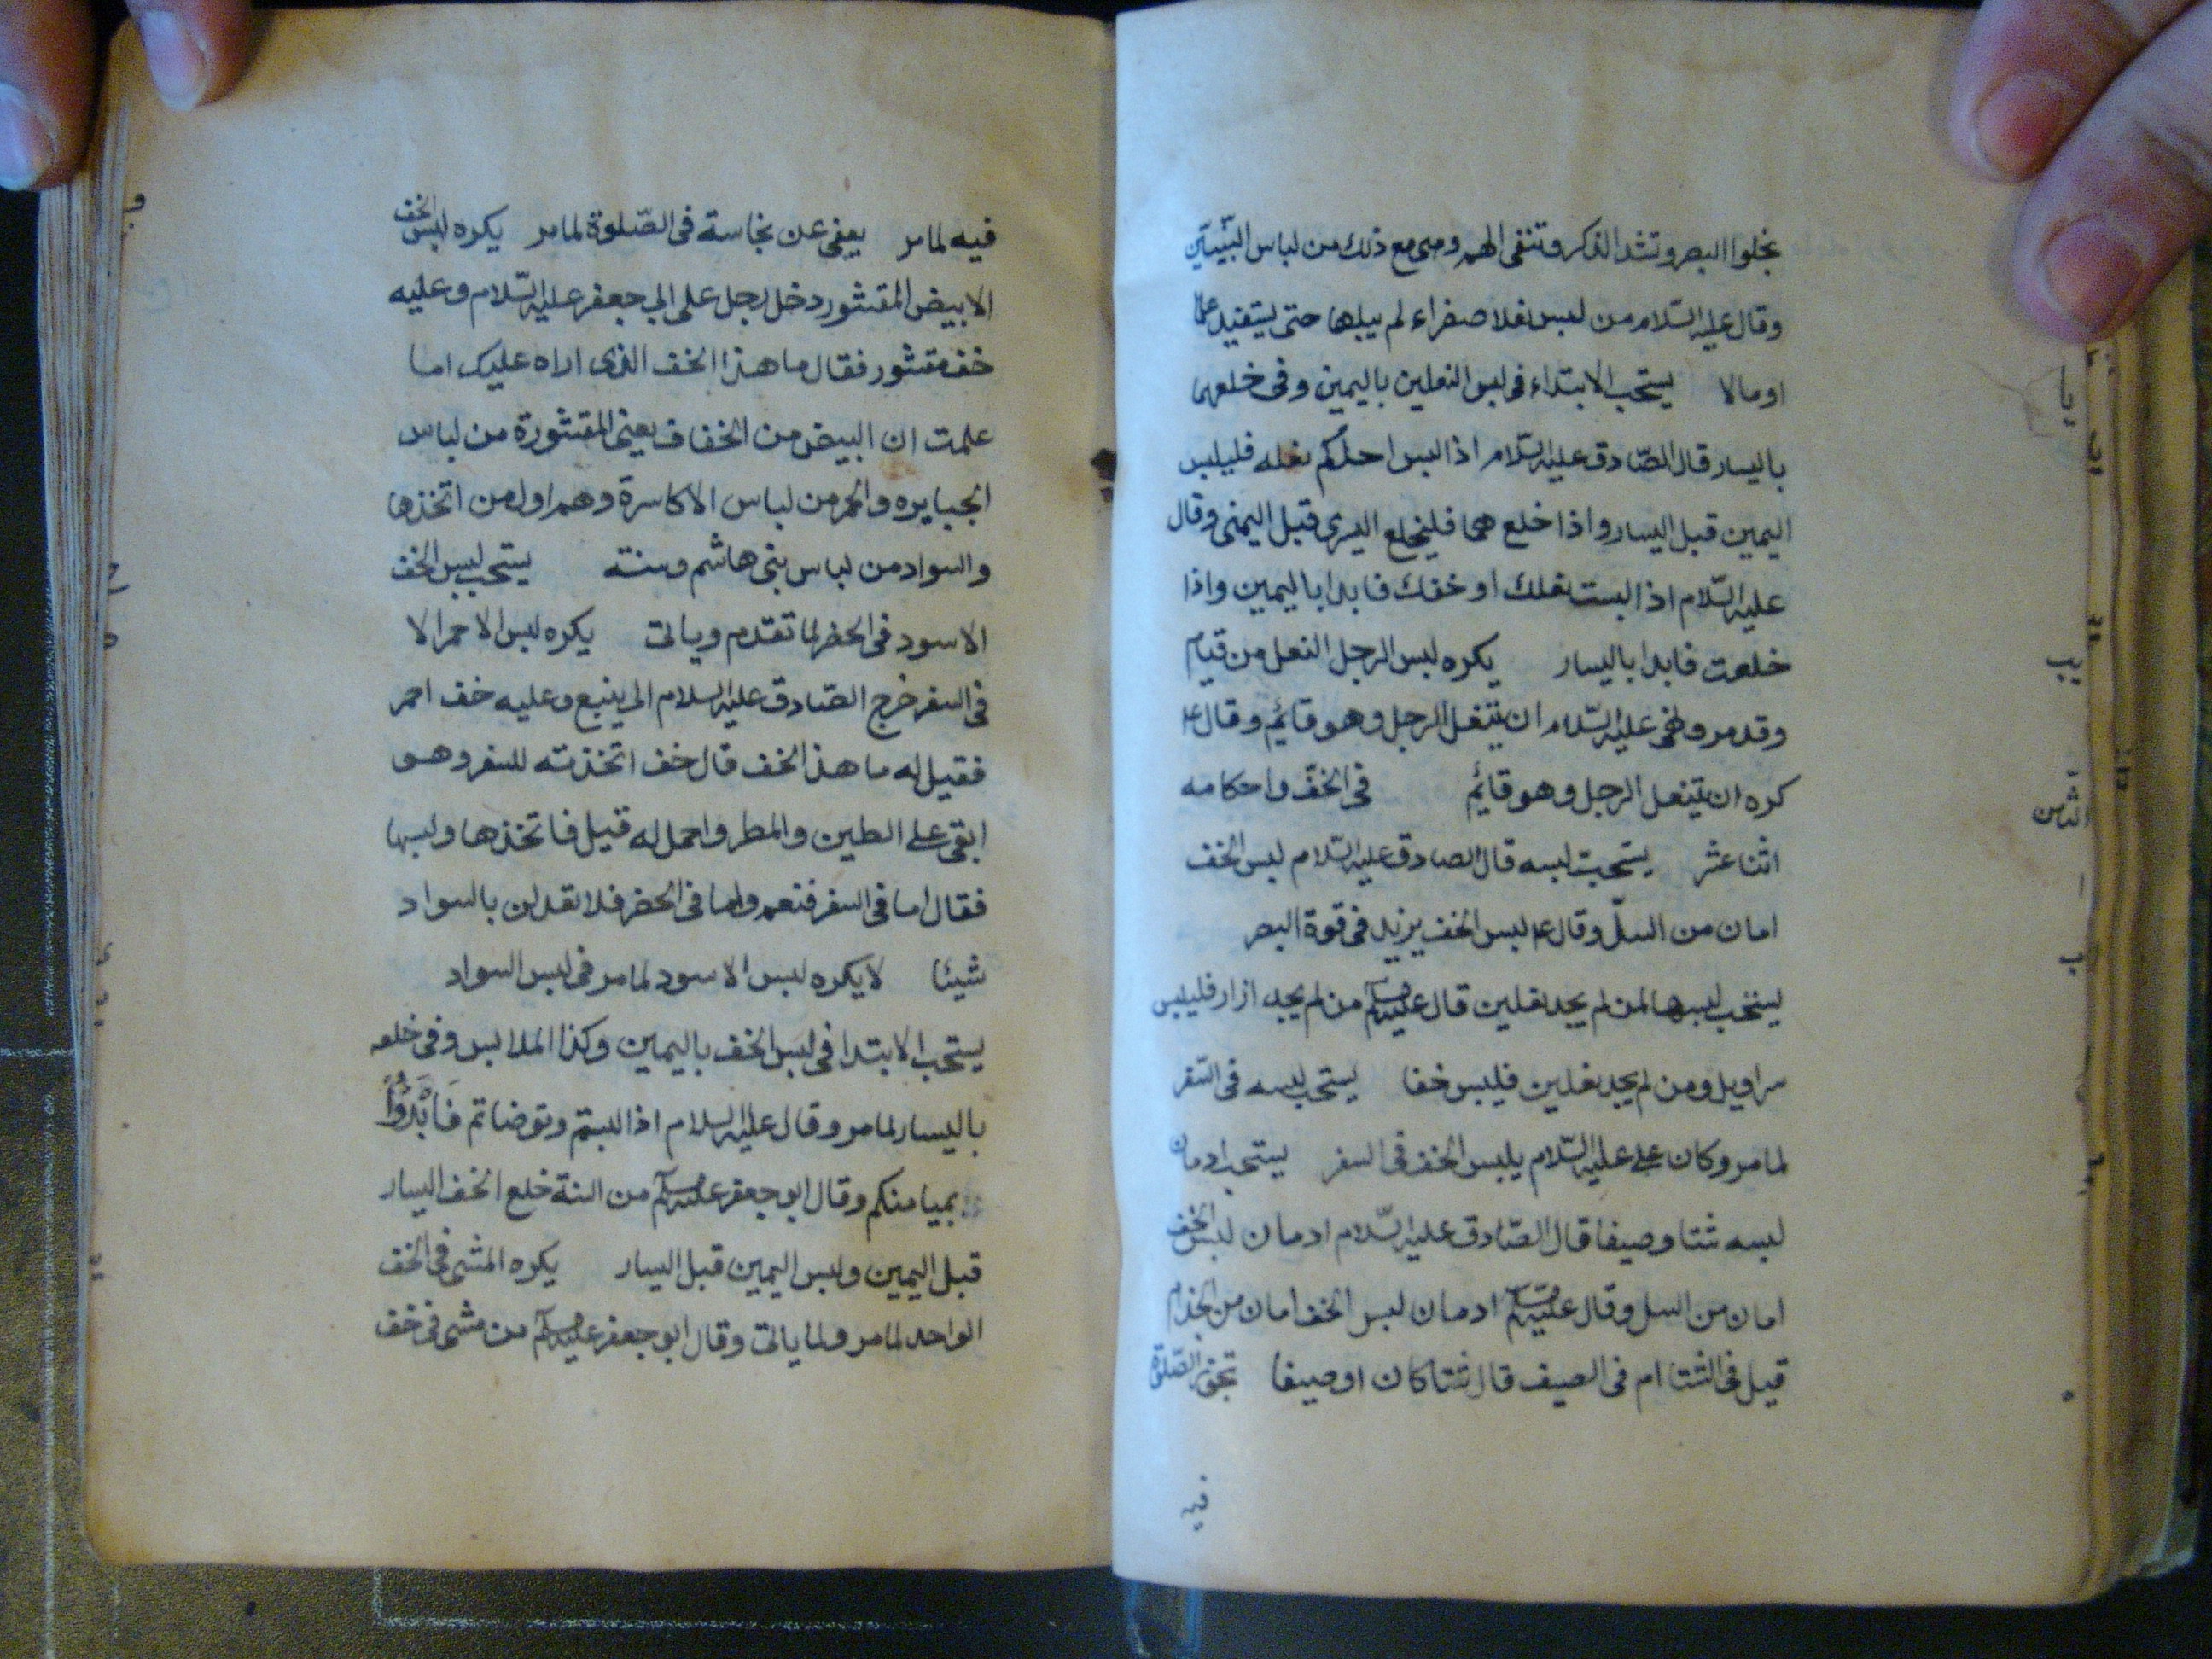 يجلوا البصر و تشد الذكر و تنفى الهم و هى مع ذلك من لباس النبيين
وقال عليه السّلام من لبس نعلا صفراء لم يبلها حتى يستفيد علما
او مالا يستحب الابتداء فى لبس النعلين باليمين و فى خلعهما
باليسار قال الصّادق عليه السّلام اذا لبس احدكم نعله فليلبس
اليمين قبل اليسار و اذا خلعها فليخلع اليسرى قبل اليمنى وقال
عليه السّلام اذا لبست نعلك او خفك فابدا باليمين و اذا
خلعت فابدا باليسار يكره لبس الرجل النعل من قيام
وقد مر و نهى عليه السّلام ان يتنعل الرجل و هو قائم وقال ع
كره ان يتنعل الرجل و هو قائم فى الخفّ و احكامه
اثنا عشر يستحب لبسه قال الصادق عليه السّلام لبس الخف
امان من السلّ وقال ع لبس الخف يزيد فى قوة البصر
يستحب لبسها لمن لم يجد نعلين قال عليه السلم من لم يجد ازار فليلبس
سراويل و من لم يجد نعلين فليبس خفا يستحب لبسه فى السّفر
لمامر و كان على عليه السّلام يلبس الخف فى السفر يستحب ادمان
لبسه شتا و صيفا قال الصّادق عليه السّلام ادمان لبس الخف
امان من السل وقال عليه السلم ادمان لبس الخف امان من الجذام
قيل فى الشتا ام فى الصيف قال شتا كان او صيفا تجوز الصّلوة
فيه
يا
يب
الثامن
فيه لمامر يعفى عن نجاسة فى الصّلوة لمامر يكره لبس الخف
الابيض المقشور دخل رجل على ابى جعفر عليه السّلام و عليه
خف مقشور فقال ما هذا الخف الذى اراه عليك اما
علمت ان البيض من الخفاف يعنى المقشورة من لباس
الجبابره و الحمر من لباس الاكاسرة و هم اول من اتخذها
و السواد من لباس بنى هاشم و سنة يستحب لبس الخف
الاسود فى الحضر لما تقدم و ياتى يكره لبس الاحمر الا
فى السفر خرج الصّادق عليه السلام الى ينبع و عليه خف احمر
فقيل له ما هذا الخف قال خف اتخذته للسفر و هو
ابقى على الطين و المطر و احمل له قيل فاتخذها و لبسها
فقال اما فى السفر فنعم و اما فى الحضر فلا تعدلن بالسواد
شيئا لا يكره لبس الاسود لمامر فى لبس السواد
يستحب الابتدا فى لبس الخف باليمين و كذا الملابس و فى خلعه
باليسار لمامر وقال عليه السلام اذا لبستم و توضاتم فَابْدَؤُا
بميامنكم وقال ابو جعفر عليه السلم من السنة خلع الخف اليسار
قبل اليمين و لبس اليمين قبل اليسار يكره المشى فى الخف
الواحد لمامر و لما ياتى وقال ابو جعفر عليه السلم من مشى فى خف